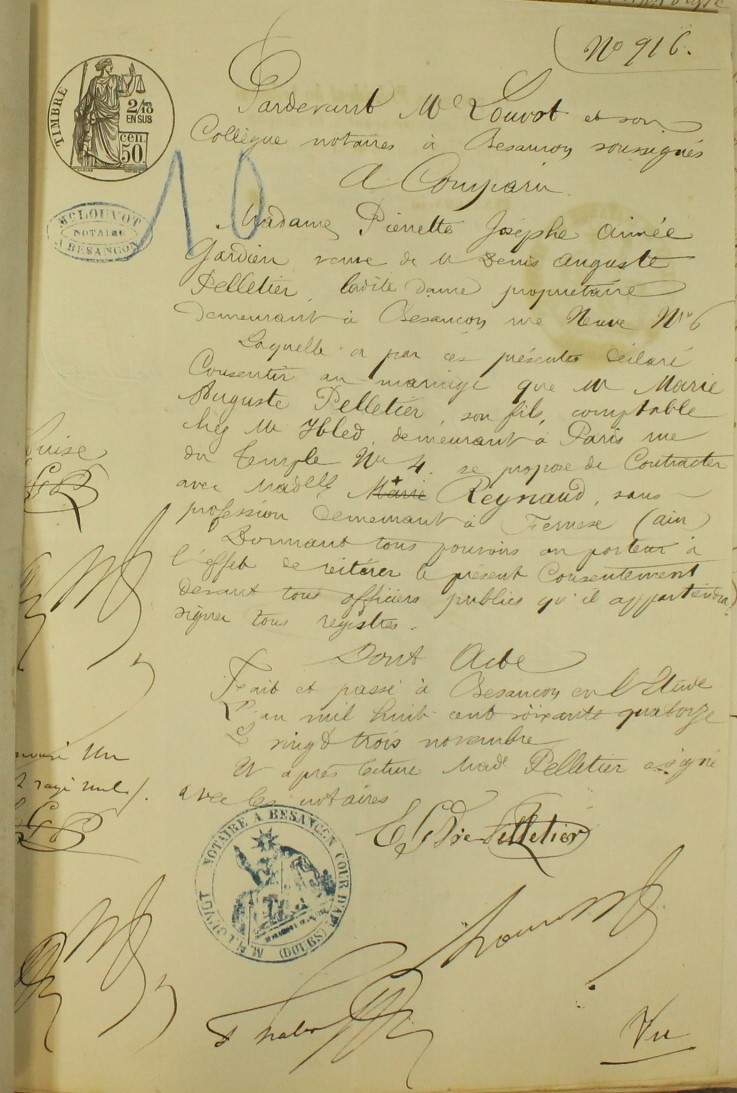 No 916.
TIMBRE
2/10
EN SUS
50 cen
Pardevant Me Louvot et son
Collègue notaires à Besancon soussignés
Mc LOUVOT
NOTAIRE
A BESANÇON
10
A Comparu
Madame Pierrette Josèphe Aimée
Gardien veuve de M Denis Auguste
Pelletier, ladite dame propriétaire
demeurant à Besancon rue Neuve No 6
Laquelle a par ces présentes déclaré
Consentir au mariage que Mr Marie
Auguste Pelletier, son fils, comptable
chez Mr Ibled, demeurant à Paris rue
du Temple No 4. se propose de Contracter
avec Madelle Marie Reynaud, sans
profession demeurant à Fernex (ain)
Donnant tous pouvoirs au porteur à
l'effet de réitérer le présent Consentement
devant tous officiers publics qu'il appartiendra,
signer tous registres.
Dont Acte
Fait et passé à Besancon en l'Etude
L'an mil huit cent soixante quatorze
Le vingt trois novembre
Et après lecture Made Pelletier a signé
avec les notaires
Louise
un
rayé nul /.
Pelletier
M. LOUVOT NOTAIRE A BESANÇON COUR D'APP. (DOUBS)
Louvot
Vu